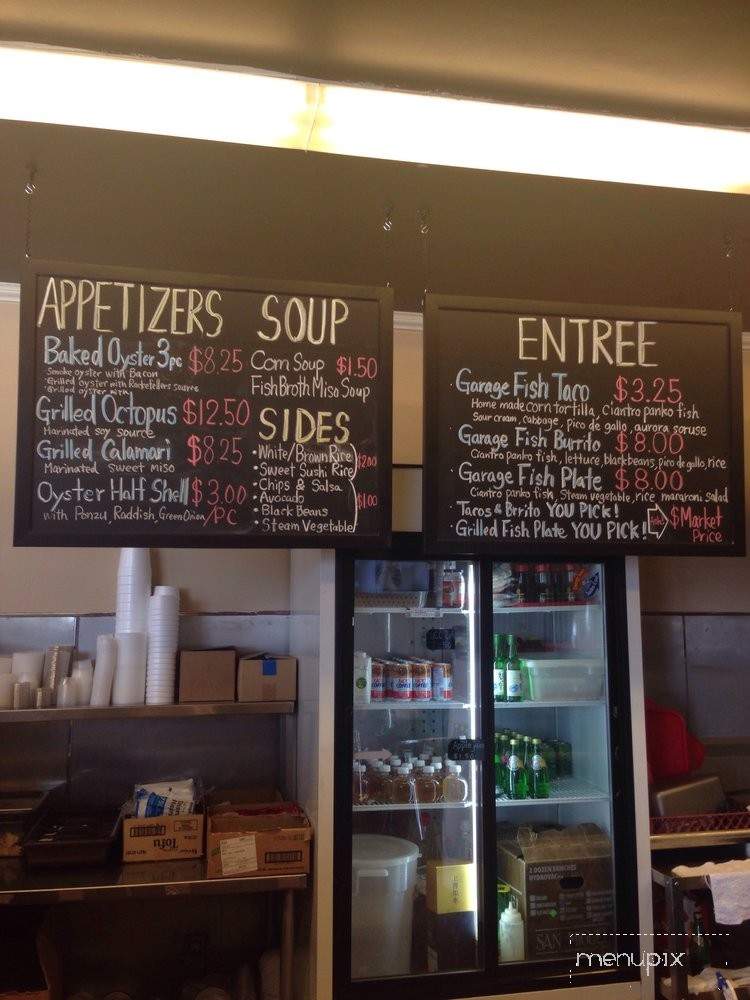 APPETIZERS
Baked Oyster 3pc $8.25
Smoke oyster with Bacon
Grilled oyster with Rockefellers source
Grilled oyster with
Grilled Octopus $12.50
Marinated soy source
Grilled Calamari $8.25
Marinated sweet miso
Oyster Half Shell $3.00
with Ponzu, Raddish, Green Onion /PC
SOUP
Corn Soup $1.50
Fish Broth Miso Soup
SIDES
• White/Brown Rice
• Sweet Sushi Rice $2.00
• Chips & Salsa
• Avocado
• Black Beans $1.00
• Steam Vegetable
ENTREE
• Garage Fish Taco $3.25
Home made corn tortilla, ciantro panko fish
Sour cream, cabbage, pico de gallo, aurora soruse
• Garage Fish Burrito $8.00
Ciantro panko fish, lettuce, blackbeans, pico de gallo, rice
• Garage Fish Plate $8.00
Ciantro panko fish, Steam vegetable, rice, macaroni salad
• Tacos & Brrito YOU PICK!
• Grilled Fish Plate YOU PICK!
$Market
Price
Tofu
Apple
2 DOZEN BUNCHES
HYDROV
SAN
menupix